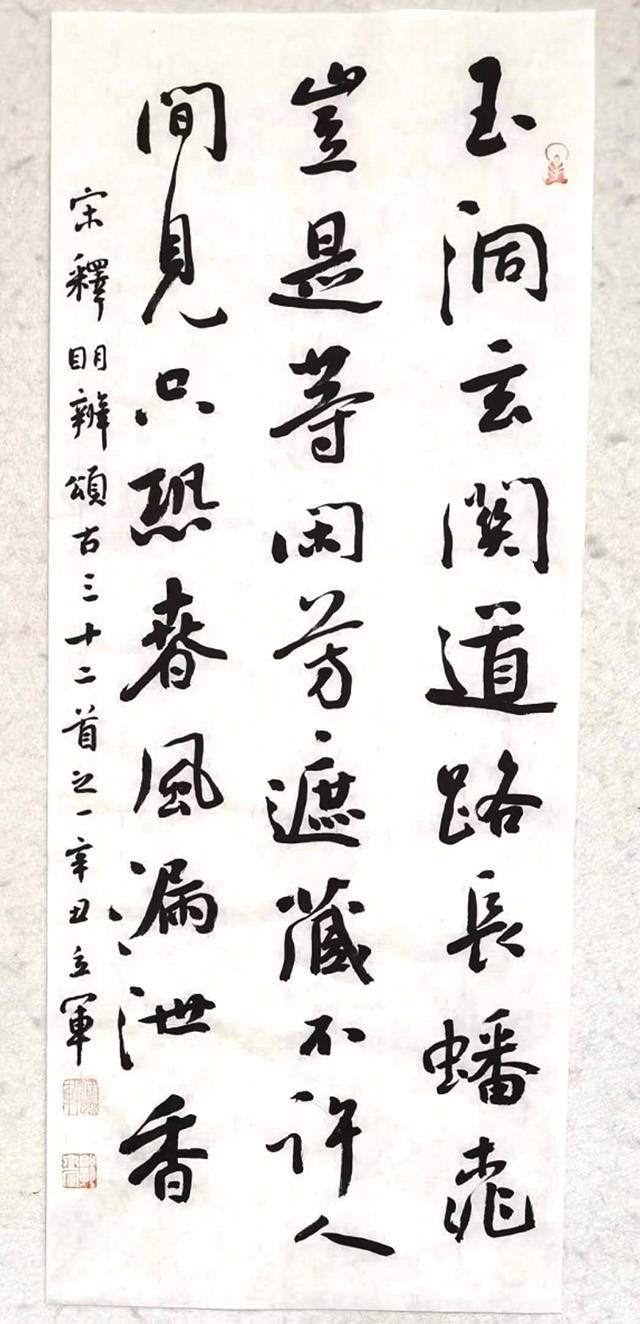 玉洞玄關道路長蟠桃
豈是等閑芳遮藏不許人
間見只恐春風漏泄香
宋釋明辨頌古三十二首之一辛丑立軍